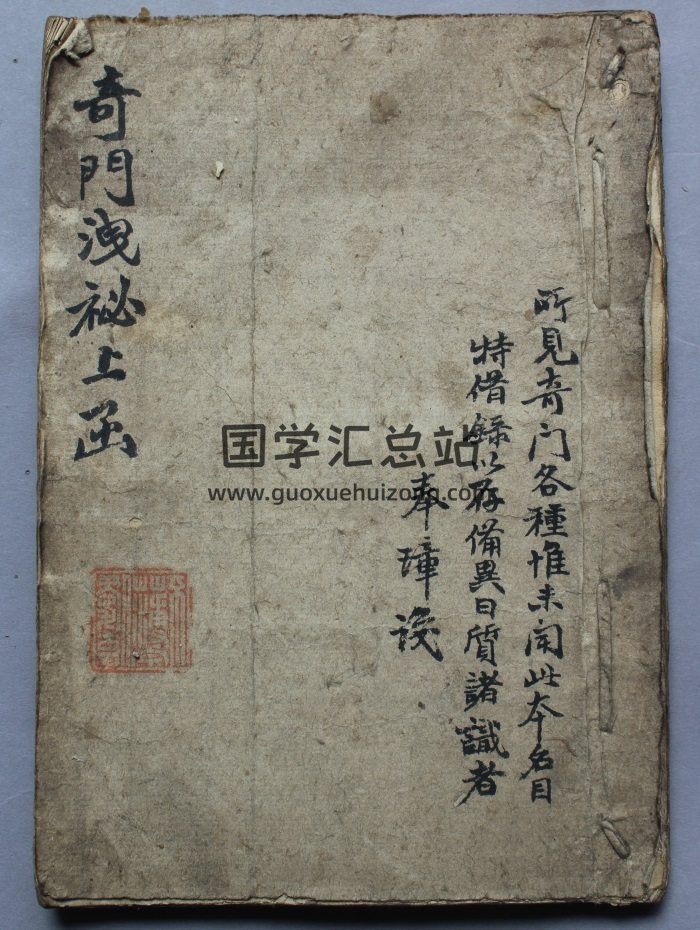 奇門洩祕上函
所見奇门各種惟未聞此本名目
特借録以存備異日質諸識者
奉璋
国学汇总站
www.guoxuehuizong.com